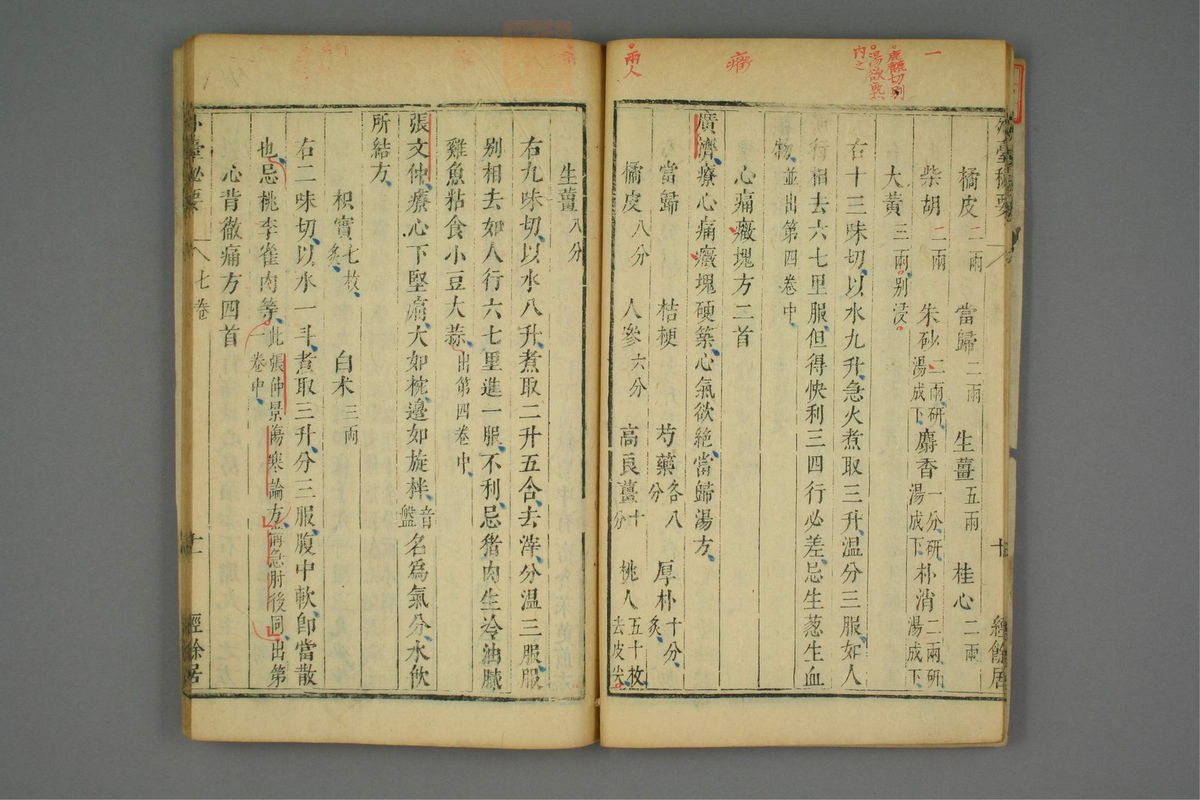 橘皮二兩 當歸二兩 生薑五兩 桂心二兩
柴胡二兩 朱砂二兩研湯成下 麝香一分研湯成下 朴消二兩研湯成下
大黃三兩別浸
右十三味切以水九升急火煮取三升溫分三服如人
行相去六七里服但得快利三四行必差忌生葱生血
物並出第四卷中
心痛癥塊方二首
廣濟療心痛癥塊硬築心氣欲絶當歸湯方
當歸 桔梗 芍藥各八分 厚朴十分炙
橘皮八分 人參六分 高良薑十分 桃人五十枚去皮尖
一
痛
兩人
外臺秘要
十
經餘居
生薑八分
右九味切以水八升煮取二升五合去滓分溫三服服
別相去如人行六七里進一服不利忌猪肉生冷油膩
雞魚粘食小豆大蒜出第四卷中
張文仲療心下堅痛大如椀邊如旋柈音盤名為氣分水飲
所結方
枳實七枚炙 白朮三兩
右二味切以水一斗煮取三升分三服腹中軟卽當散
也忌桃李雀肉等此張仲景傷寒論方備急肘後同出第一卷中
心背徹痛方四首
外臺秘要
七卷
十一
經餘居